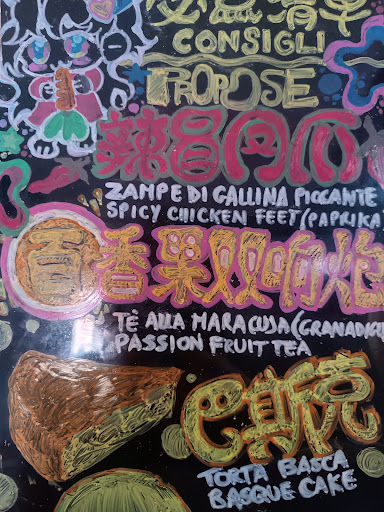 CONSIGLI
PROPOSE
ZAMPE DI GALLINA PICCANTE
SPICY CHICKEN FEET (PAPRIKA
百香果双响炮
TÈ ALLA MARACUJA (
PASSION FRUIT TEA
巴斯克
TORTA BASCA
BASQUE CAKE